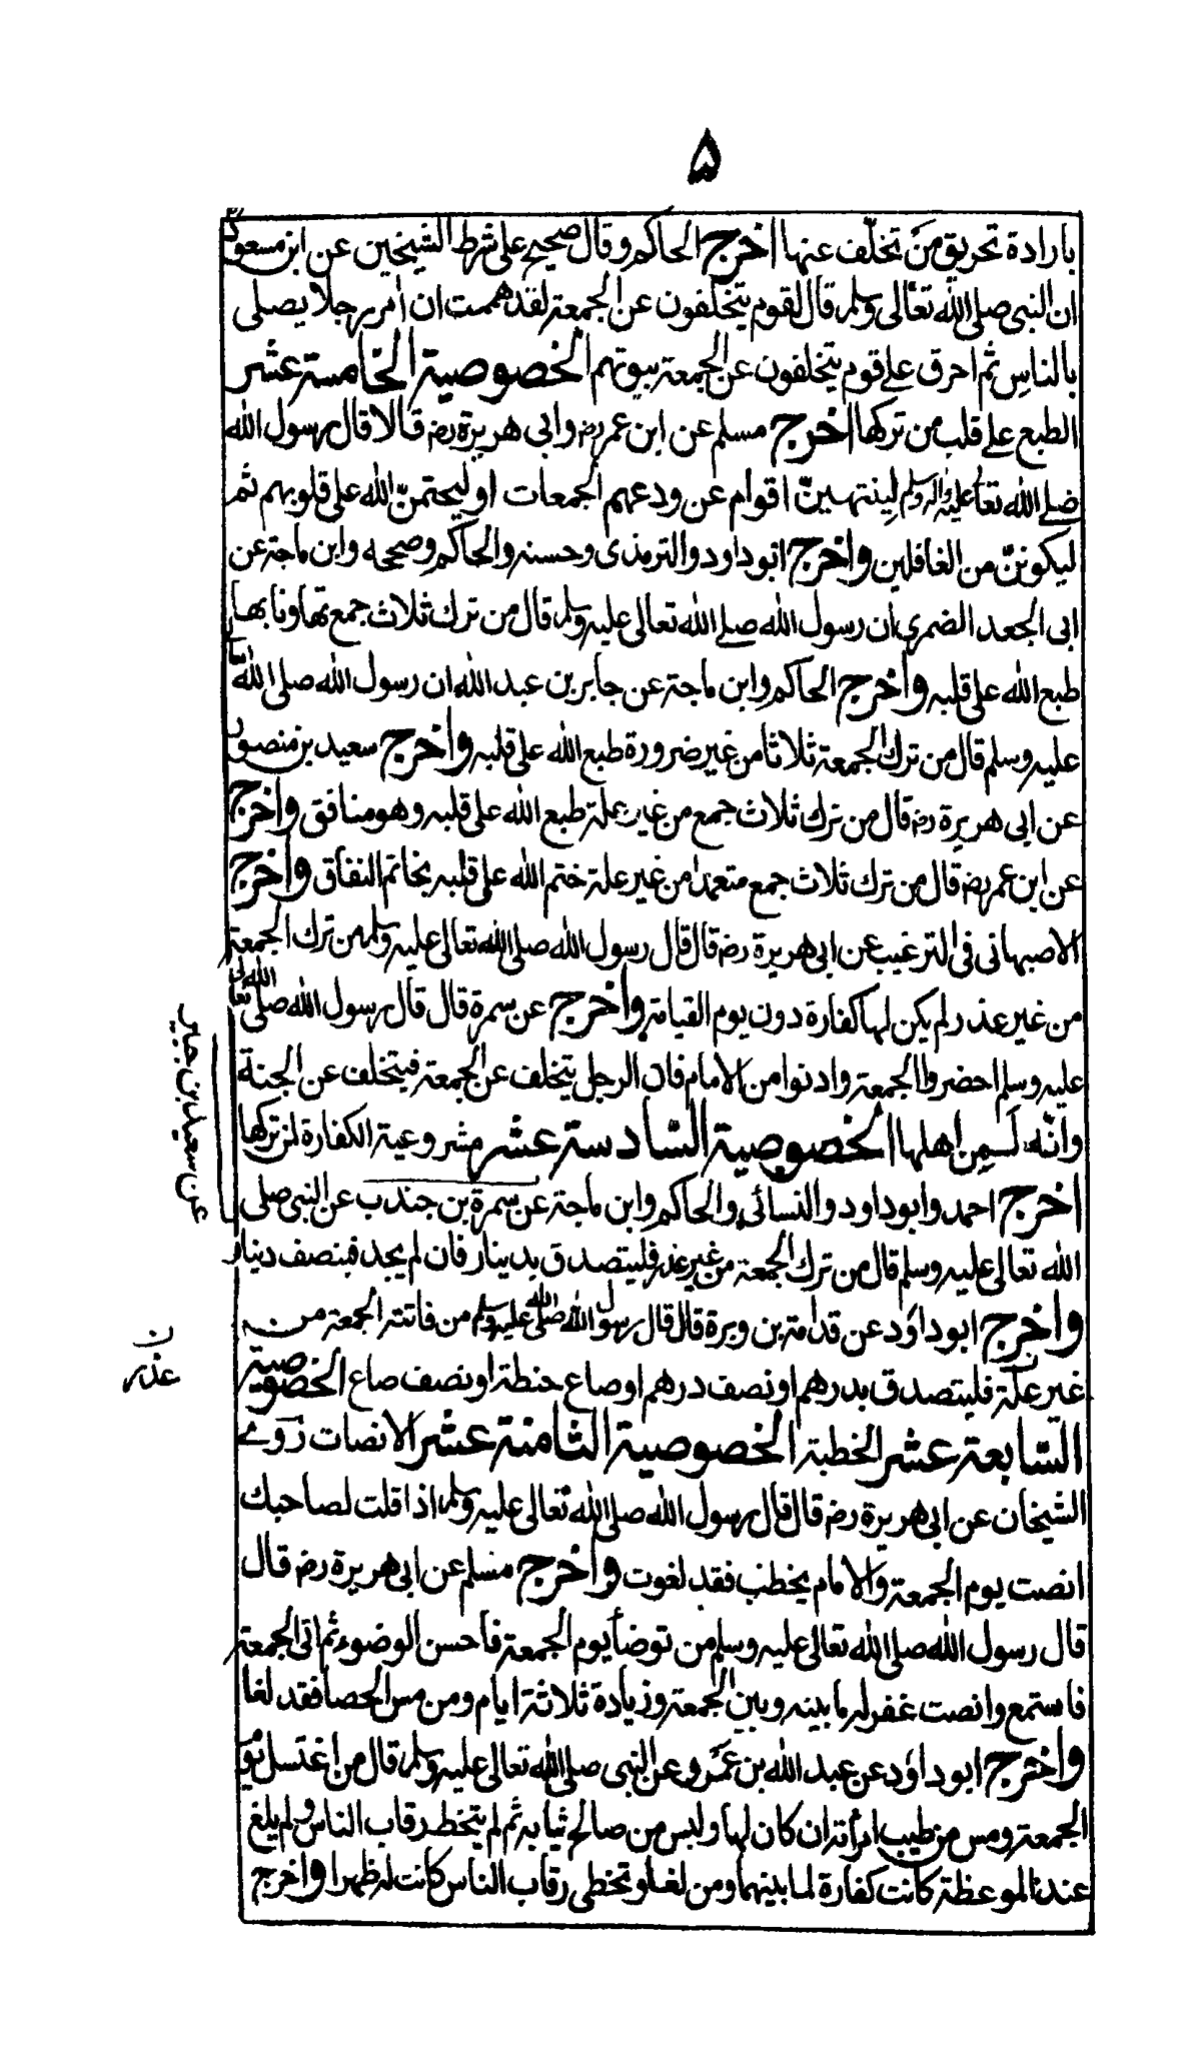 ۵
بارادة تحريق من تخلّف عنها اخرج الحاكم وقال صحيح على شرط الشيخين عن ابن مسعود رض
ان النبى صلى الله تعالى وسلم قال لقوم يتخلفون عن الجمعة لقد هممت ان آمر رجلا يصلى
بالناس ثم احرق على قوم يتخلفون عن الجمعة بيوتهم الخصوصية الخامسة عشر
الطبع على قلب من تركها اخرج مسلم عن ابن عمر رض وابى هريرة رض قالا قال رسول الله
صلى الله تعالى عليه واله وسلم لينتهينّ اقوام عن ودعهم الجمعات او ليختمنّ الله على قلوبهم ثم
ليكوننّ من الغافلين واخرج ابو داود والترمذى وحسنه والحاكم وصححه وابن ماجة عن
ابى الجعد الضمرى ان رسول الله صلى الله تعالى عليه وسلم قال من ترك ثلاث جمع تهاونا بها
طبع الله على قلبه واخرج الحاكم وابن ماجة عن جابر بن عبد الله ان رسول الله صلى الله تعالى
عليه وسلم قال من ترك الجمعة ثلاثا من غير ضرورة طبع الله على قلبه واخرج سعيد بن منصور
عن ابى هريرة رض قال من ترك ثلاث جمع من غير علة طبع الله على قلبه وهو منافق واخرج
عن ابن عمر رض قال من ترك ثلاث جمع متعمدا من غير علة ختم الله على قلبه بخاتم النفاق واخرج
الاصبهانى فى الترغيب عن ابى هريرة رض قال قال رسول الله صلى الله تعالى عليه وسلم من ترك الجمعة
من غير عذر لم يكن لها كفارة دون يوم القيامة واخرج عن سمرة قال قال رسول الله صلى الله تعالى
عليه وسلم احضروا الجمعة وادنوا من الامام فان الرجل يتخلف عن الجمعة فيتخلف عن الجنة
وانّه لمن اهلها الخصوصية السّادسة عشر مشروعية الكفارة لمن تركها
عن سعيد بن جبير
اخرج احمد وابو داود والنسائى والحاكم وابن ماجة عن سمرة بن جندب عن النبى صلى
الله تعالى عليه وسلم قال من ترك الجمعة من غير عذر فليتصدق بدينار فان لم يجد فبنصف دينار
واخرج ابو داؤد عن قدامة بن وبرة قال قال رسول الله صلى الله عليه وسلم من فاتته الجمعة من
عذر ن
غير علّة فليتصدق بدرهم او نصف درهم او صاع حنطة او نصف صاع الخصوصية
السّابعة عشر الخطبة الخصوصية الثامنة عشر الانصات روى
الشيخان عن ابى هريرة رض قال قال رسول الله صلى الله تعالى عليه وسلم اذا قلت لصاحبك
انصت يوم الجمعة والامام يخطب فقد لغوت واخرج مسلم عن ابى هريرة رض قال
قال رسول الله صلى الله تعالى عليه وسلم من توضأ يوم الجمعة فاحسن الوضوء ثم اتى الجمعة
فاستمع وانصت غفر له ما بينه وبين الجمعة وزيادة ثلاثة ايام ومن مس الحصا فقد لغا
واخرج ابو داؤد عن عبد الله بن عمرو عن النبى صلى الله تعالى عليه وسلم قال من اغتسل يوم
الجمعة ومس من طيب امرأته ان كان لها ولبس من صالح ثيابه ثم لم يتخط رقاب الناس ولم يلغ
عند الموعظة كانت كفارة لما بينهما ومن لغا وتخطى رقاب الناس كانت له ظهرا واخرج